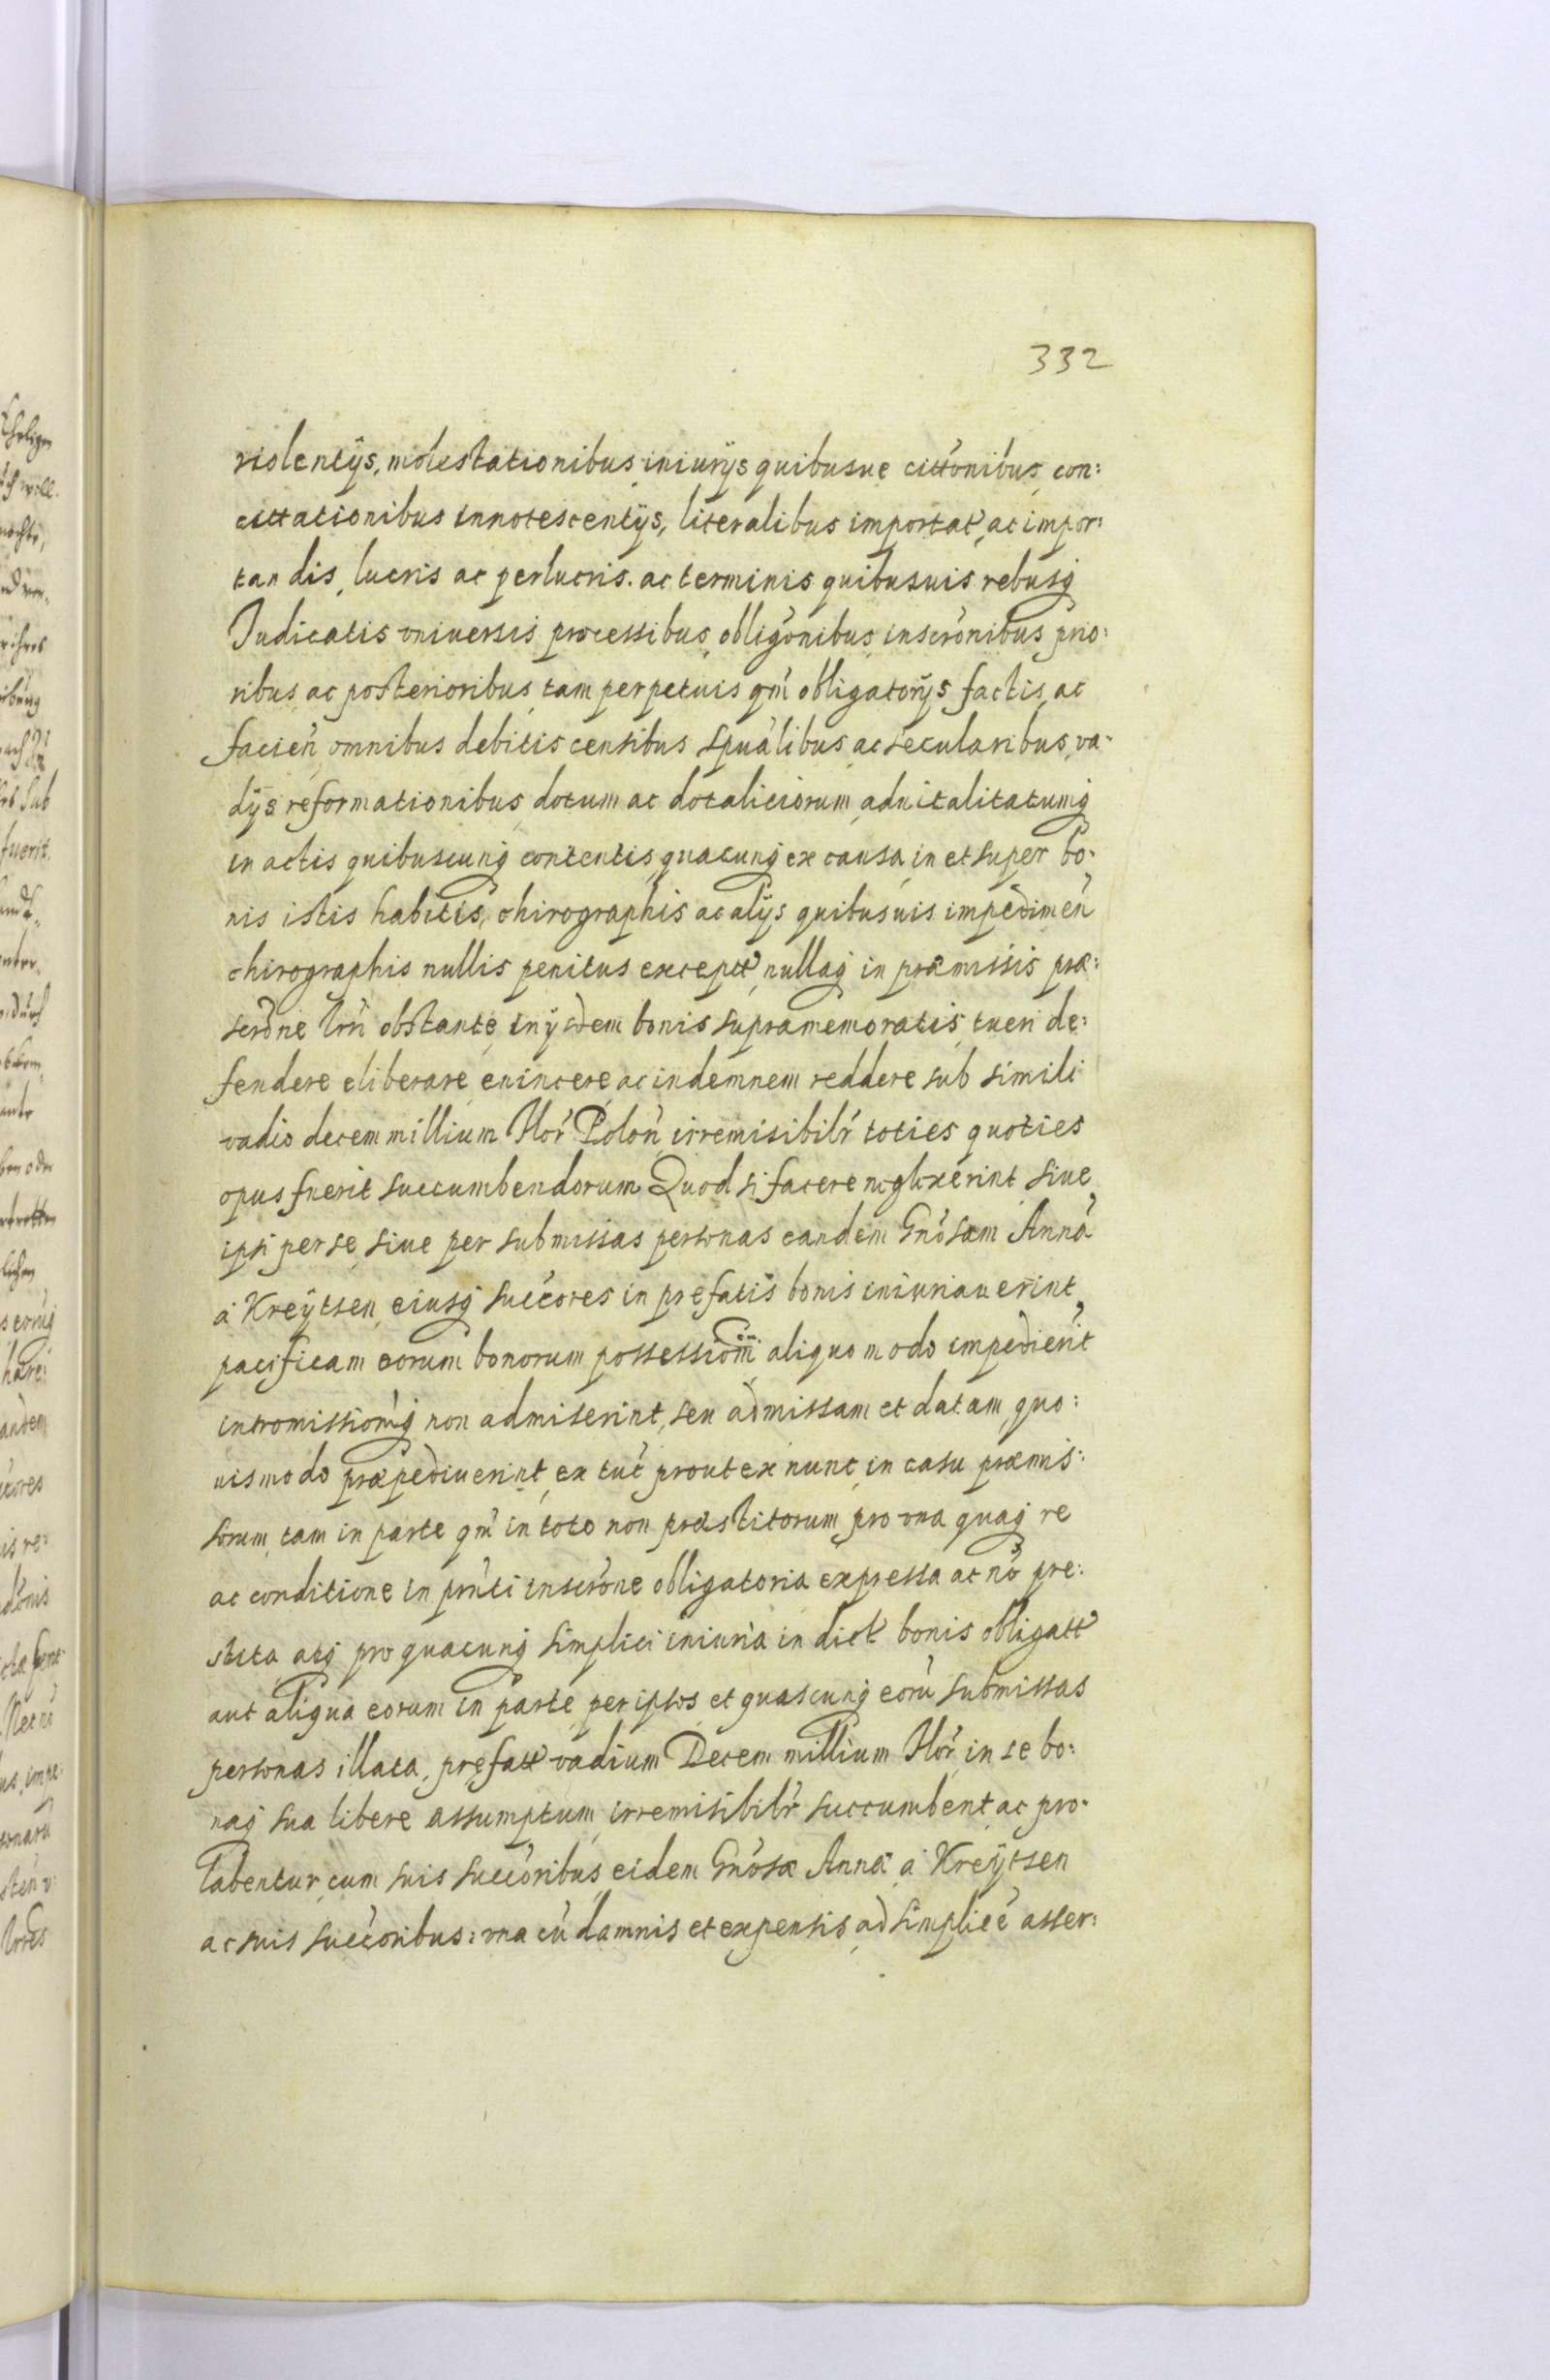 332
violentijs, molestationibus, iniurijs quibusue cittõnibus, con:
cittationibus innotescentijs, literalibus importat, ac impor:
tandis, lucris ac perlucris. ac terminis quibusuis rebusq
Iudicatis vniuersis processibus, obligõnibus, inscrõnibus prio:
ribus, ac posterioribus, tam perpetuis qm̃ obligatorijs factis, ac
facieñ omnibus debitis censibus spũalibus, ac secularibus, va:
dijs reformationibus, dotum ac dotaliciorum, aduitalitatumq
in actis quibuscunq contentis, quacunq ex causa, in et super bo:
nis istis habitis, chirographis ac alijs quibusuis impedimeñ
chirographis nullis penitus except, nullaq in præmissis præ:
scrõne trrĩ obstante, in ijsdem bonis supramemoratis, tueri de:
fendere eliberare, euincere, ac indemnem reddere sub simili
vadio decem millium flor̃ Poloñ irremisibilr̃ toties quoties
opus fuerit succumbendorum Quod si facere neglexerint siue
ipsi per se, siue per submissas personas eandem Gnõsam Annã
à Kreÿtsen, eiusq succores in prefatis bonis iniuriauerint,
pacificam eorum bonorum possessiom̃ aliquo modo impedierit
intromissiom̃q non admiserint, seu admissam et datam, quo:
uismodo præpediuerint, ex tuc̃ prout ex nunc, in casu præmis:
sorum, tam in parte qm̃ in toto non præstitorum, pro vna quaq re
ac conditione in prñti inscrõne obligatoria expressa ac nõ pre:
stita atq pro quacunq simplici iniuria in dict bonis obligatt
aut aliqua eorum in parte, per ipsos et quascunq eorũ submissas
personas illata, prefatt vadium Decem millium flor̃, in se bo:
naq sua libere assumptum, irremisibilr̃ succumbent, ac pro:
labentur, cum suis succoribus, eidem Gnõsæ Annæ à Kreÿtsen
ac suis succoribus: vna cũ damnis et expensis, ad simplicẽ asser: